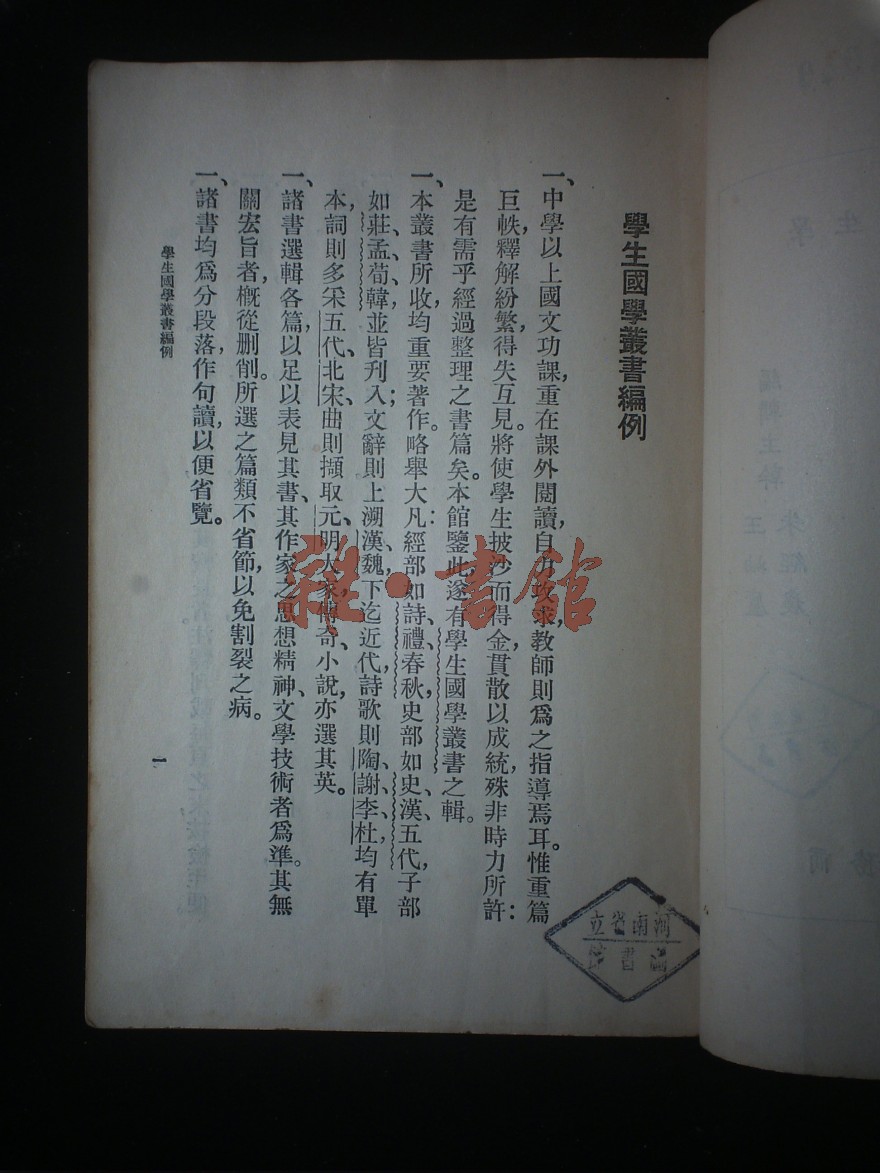 學生國學叢書編例
一、中學以上國文功課，重在課外閱讀，自力攻求；教師則爲之指導焉耳。惟重篇
巨帙，釋解紛繁，得失互見，將使學生披沙而得金，貫散以成統，殊非時力所許；
是有需乎經過整理之書篇矣。本館鑒此，遂有學生國學叢書之輯。
一、本叢書所收，均重要著作。略舉大凡：經部如詩、禮、春秋；史部如史、漢、五代；子部
如莊、孟、荀、韓，並皆列入；文辭則上溯漢、魏，下迄近代；詩歌則陶、謝、李、杜，均有單
本；詞則多采五代、北宋；曲則擷取元、明大家；傳奇、小說，亦選其英。
一、諸書選輯各篇，以足以表見其書、其作家之思想精神、文學技術者爲準。其無
關宏旨者，概從删削。所選之篇類不省節，以免割裂之病。
一、諸書均爲分段落，作句讀，以便省覽。
學生國學叢書編例
一
雜·書館
河南省立
圖書館